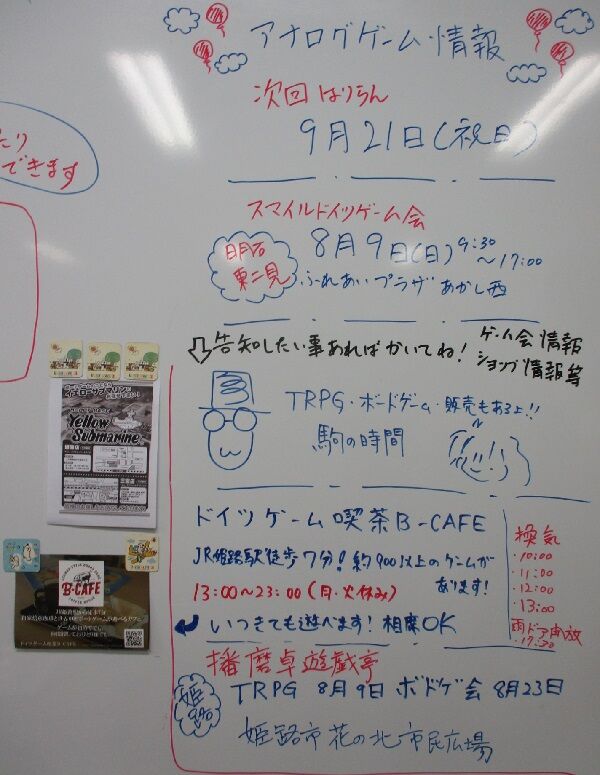 アナログゲーム情報
次回はりらん
9月21日(祝日)
たり
できます
スマイルドイツゲーム会
明石
東二見
8月9日(日) 9:30
～17:00
ふれあいプラザあかし西
告知したい事あればかいてね!
ゲーム会情報
ショップ情報等
TRPG・ボードゲーム・販売もあるよ!!
駒の時間
Yellow
Submarine
ドイツゲーム喫茶B-CAFE
JR姫路駅徒歩7分!約900以上のゲームが
あります!
13:00～23:00(月・火休み)
いつきても遊べます!相席OK
換気
・10:00
・11:00
・12:00
・13:00
・17:30
B-CAFE
播磨卓遊戯亭
TRPG 8月9日 ボドゲ会 8月23日
姫路市花の北市民広場